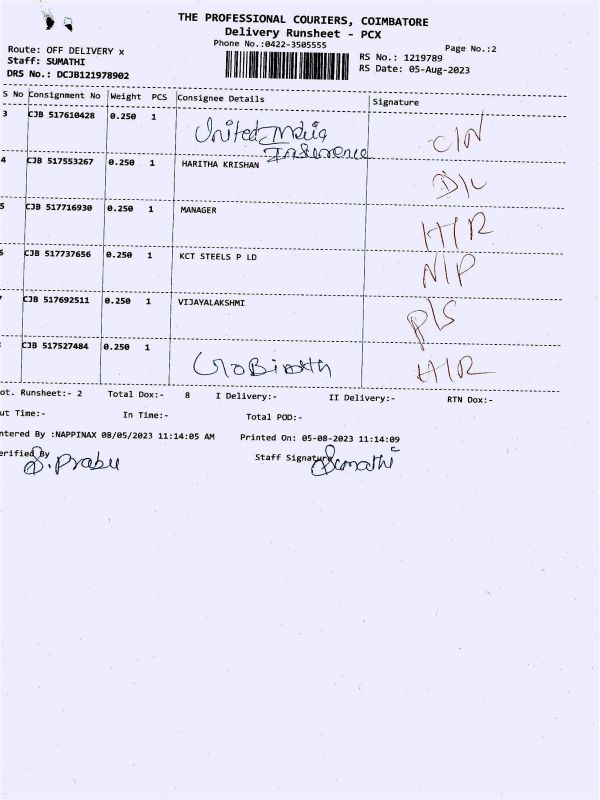 THE PROFESSIONAL COURIERS, COIMBATORE
Delivery Runsheet - PCX
Phone No.:0422-3505555
Page No.:2
Route: OFF DELIVERY x
Staff: SUMATHI
DRS No.: DCJB121978902
RS No.: 1219789
RS Date: 05-Aug-2023
S No Consignment No Weight PCS Consignee Details Signature
3 CJB 517610428 0.250 1 United India Insurence C/N
4 CJB 517553267 0.250 1 HARITHA KRISHAN D/L
5 CJB 517716930 0.250 1 MANAGER H/R
6 CJB 517737656 0.250 1 KCT STEELS P LD N/P
CJB 517692511 0.250 1 VIJAYALAKSHMI P/S
CJB 517527484 0.250 1 H/R
ot. Runsheet:- 2 Total Dox:- 8 I Delivery:- II Delivery:- RTN Dox:-
ut Time:- In Time:- Total POD:-
ntered By :NAPPINAX 08/05/2023 11:14:05 AM Printed On: 05-08-2023 11:14:09
erified By S. Prabu Staff Signature Sumathi